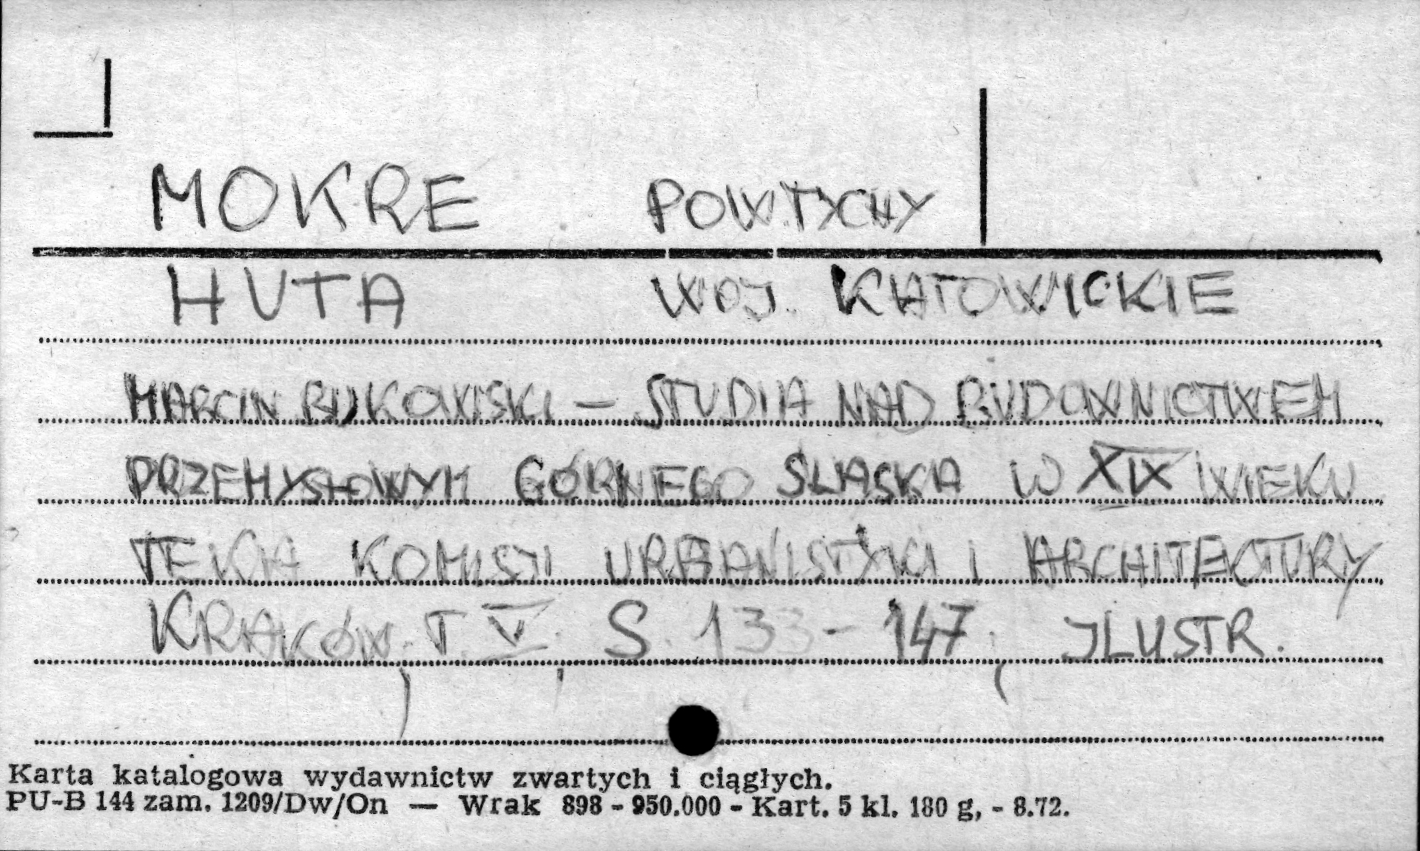 MOKRE POW. TYCHY
HUTA WOJ. KATOWICKIE
MARCIN BUKOWSKI – STUDIA NAD BUDOWNICTWEM
PRZEMYSŁOWYM GÓRNEGO ŚLĄSKA W XIX WIEKU
TEKA KOMISJI URBANISTYKI I ARCHITEKTURY
KRAKÓW. T. V. S. 133 - 147, ILUSTR.
Karta katalogowa wydawnictw zwartych i ciągłych.
PU-B 144 zam. 1209/Dw/On — Wrak 898 - 950.000 - Kart. 5 kl. 180 g, - 8.72.